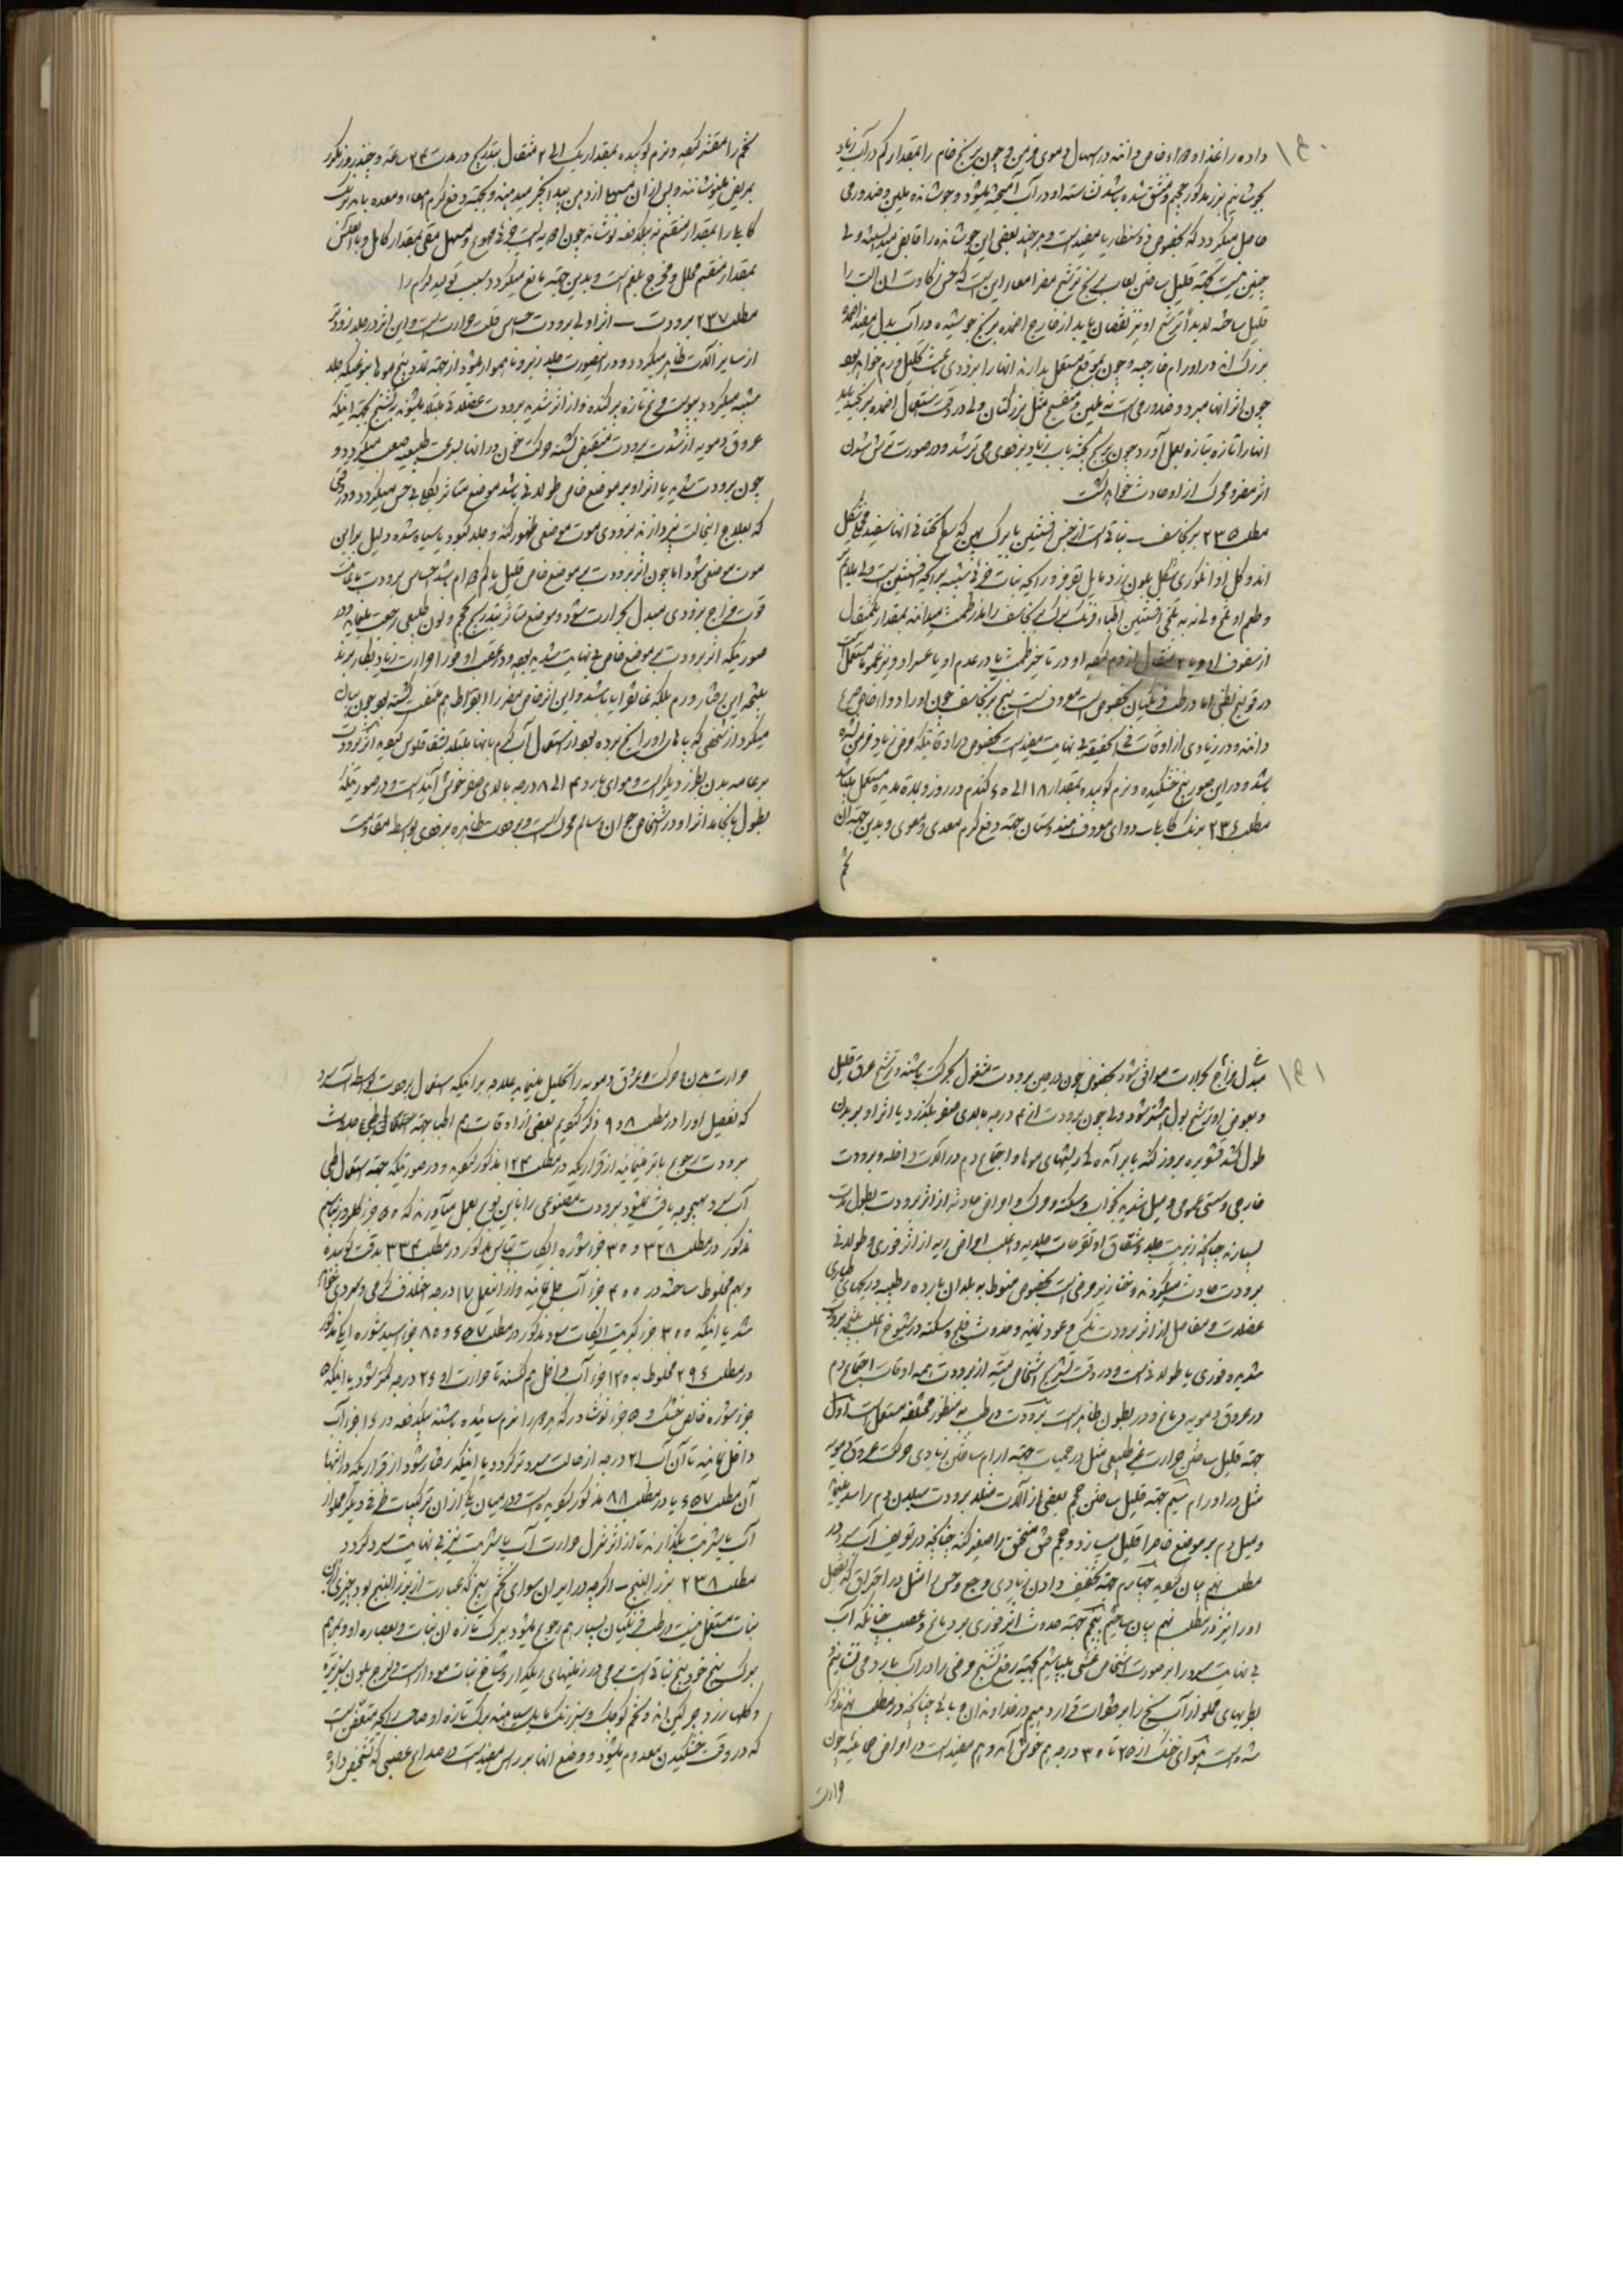 ۱۶۰
داده را غذا و دواء خاص دانند در اسهال دموی مزمن و چون برنج خام را بمقدار کم در آب زیاد
بجوشانیم بزر مذکور حجیم و منشق شده باشد نشاسته او در آب آمیخته میشود و جوشانده ملین و ضد ورمی
حاصل میکردد که بخصوص در ذوسنطاریا مفید است و هر چند بعضی این جوشانده را قابض میدانسته ولی
چنین نیست بجهة قلیل ساختن لعاب برنج ترشح مضر امعاء را
قلیل ساخته لابد اثر ترشح او نیز نقصان یابد از خارج اضمده برنج جوشیده در آب بدل
بزرک اند در اورام خارجه و چون بموقع مستعمل بدارند انها را بزودی باعث تحلیل ورم خواهد بود
چون اثر انها مبرد و ضد ورمی است نه ملین و منضج مثل بزر کتان ولی در وقت استعمال اضمده برنج باید
انها را تازه بتازه بعمل آورد چون برنج پخته باب زیاد بزودی می ترشد و در صورت ترش شدن
اثر مضر و محرک از او حادث خواهد کشت
مطلب ۲۳۵ برنجاسف ـ نباتی است از جنس افسنتین با برک پهن که سطح تحتانی انها سفید مخملی شکل
اند و کل او انکوری شکل بلون زرد مایل بقرمز و رایحه نبات شبیه برایحه افسنتین است ولی ملایم تر
و طعم او تلخ ولی نه به تلخی افسنتین اطباء فرنک برک برنجاسف را مدر طمث میدانند بمقدار یکمثقال
از سفوف او و یا ۲ مثقال از دم کرده او در تاخیر طمث یا در عدم او یا عسر او و نیز عموما مستعمل است
در قولنج بطنی اما در طب فرنکیان بخصوص معروف است بیخ برنجاسف چون او را دواء خاص صرع
دانند و در زیادی از اوقات فی الحقیقه بی نهایت مفید است بخصوص در اوقاتیکه مرض زیاد مزمن نشده
باشد و در این صور بیخ خشکیده و نرم کوبیده بمقدار ۱۸ الی ۶۵ کندم در روز و بمدة مدیده مستعمل میباشد
مطلب ۲۳۶ برنک کابلی دوای معروف هندوستان جهة دفع کرم معدی و معوی و بدین جهة ان
تخم
تخم را مقشر کرده و نرم کوبیده بمقدار یک الی ۲ مثقال بتدریج در مدت ۲۴ ساعة و چند روز مکرر
بمریض مینوشانند و پس از ان مسهلی از دهن بید انجیر میدهند و بجهة دفع کرم امعاء و معده باید برنک
کابلی را بمقدار منقسم نه یکدفعه نوشانید چون ادویه ایست مهوع و مسهل مقی بمقدار کامل و بالعکس
بمقدار منقسم محلل و مخرج بلغم است و بدین جهة مانع میکردد سبب تولید کرم را
مطلب ۲۳۷ برودت ـ اثر اولی برودت احساس قلت حرارت است و این اثر در جلد زودتر
از سایر الات ظاهر میکردد و در اینصورت جلد زبر و ناهموار میشود از جهة تمدد بیخ موها بنوعیکه جلد
مشبه میکردد بپوست مرغ تازه پر کنده و از اثر شدید برودت عضلات مبتلا میشوند به تشنج بجهة اینکه
عروق دمویه از شدت برودت منقبض کشته حرکت خون در انها بسرعت طبیعیه صعب میکردد و
چون برودت شدید یا اثر او بر موضع خاص طولانی باشد موضع متاثر بکلی بی حس میکردد و در وقتی
که بعلاج اینحالت نپردازند بزودی موت موضعی ظهور کند و جلد کبود یا سیاه شده دلیل بر این
موت موضعی شود اما چون اثر برودت بر موضع خاص قلیل یا کم دوام باشد احساس برودت باعانت
قوت مزاج بزودی مبدل بحرارت شود و موضع متاثر بتدریج بحجم و لون طبیعی رجعت مینماید در
صورتیکه اثر برودت بر موضع خاص بی نهایت شدید بوده و در عقب او فورا حرارت زیاد بکار برند
نتیجه این رفتار ورم بلکه غانغرایا باشد و این اثر خاص مضر را ابقراط هم ملتفت کشته بود چون بیان
میکرد از شخصی که پاهای او را یخ برده بود از استعمال آب کرم با نها مبتلا بشقاقلوس کردید اثر برودت
بر عامه بدن بطرز دیکر است و هوای بارد ۳ الی ۸ درجه بالای صفر خوش آیند است و در صورتیکه
بطول نانجامد اثر او در اشخاص جوان و سالم محرک است و برودت ظاهره بزودی بواسطه مقاومت
۱۶۱
مبدل مزاج بحرارت موافق شود بخصوص چون در حین برودت مشغول بحرکت باشند و ترشح عرق قلیل
و بعوض او ترشح بول بیشتر شود ولی چون برودت از ۳ درجه بالای صفر بکذرد یا اثر او بر بدن
طول کشد قشعریره بروز کند با برآمدکی ریشهای موها و اجتماع دم در آلات داخله و برودت
خارجی و سستی عمومی و میل شدید بخواب و سکته و مرک و امراض حادثه از اثر برودت بطول مدت
بسیارند چنانکه زبریت جلد و شقاق او و قرحات جلدیه و اغلب امراض ریه از اثر فوری و طولانی
برودت حادث میکردند و خنازیر مرضی است بخصوص منوط به بلدان بارده رطبه و دردهای
عضلات و مفاصل از اثر برودت نکس و عود نمایند و حدوث فلج و سکته در شیوخ اغلب نتیجه برودت
شدیده فوری یا طولانی است و در وقت تشریح اشخاص میته از برودت همه اوقات اجتماع دم
در عروق دمویه دماغ و در بطون ظاهر است برودت در طب به منظور مختلفه مستعمل است اول
جهة قلیل ساختن حرارت غیر طبیعی مثل در حمیات جهة ارام ساختن زیادی حرکت عروق دمویه
مثل در اورام سیم جهة قلیل ساختن حجم بعضی از آلات مثلا برودت سیلان دم را سد مینماید
و میل دم بر موضع خاص را قلیل سازد و حجم فتق مختنق را صغیر کند چنانکه در تعریف آب سرد در
مطلب نهم بیان کردید چهارم جهة تخفیف دادن زیادی وجع و حس مثل در احتراق که تفصیل
او را نیز در مطلب نهم بیان ساختیم پنجم جهة حدوث اثر فوری بر دماغ و عصب چنانکه آب
بی نهایت سرد را بر صورت اشخاص غشی بپاشیم بجهة رفع تشنج مرضی را در آب بارد می نشانیم
بطریهای مملو از آب یخ را بر فقرات قرار دهیم در مداوای و بائی چنانکه در مطلب نهم مذکور
شده است هوای خنک از ۲۵ تا ۳۰ درجه هم خوش آیند و هم مفید است در امراض حمائیه چون
حرارت
حرارت بدن و حرکت عروق دمویه را تحلیل مینماید علاوه بر اینکه استعمال برودت بواسطه آب سرد
که تفصیل او را در مطلب ۸ و ۹ ذکر کردیم بعضی از اوقات هم اطبا بجهة حدوث
برودت رجوع باتر مینمایند از قراریکه در مطلب ۱۲۴ مذکور کردید و در صورتیکه جهة استعمال طبی
آب سرد بهیچوجه یافت نمیشود برودت مصنوعی را باین نوع بعمل میآورند که ۵۵ جزء کلرور پتاسیم
مذکور در مطلب ۳۲۸ و ۳۵ جزء شوره ازتات پتاس مذکور در مطلب ۳۳۴ بدقت کوبیده
و بهم مخلوط ساخته در ۴۰۰ جزء آب حل نمایند و از اینعمل ۱۷ درجه اختلاف کرمی و سردی خواهد
شد یا اینکه ۳۰۰ جزء کبریتات سود مذکور در مطلب ۶۵۷ و ۸۵ جزء اسید شوره ایکه مذکور
در مطلب ۲۹۶ مخلوط به ۱۲۵ جزء آب داخل هم کنند تا حرارت او ۲۶ درجه کمتر شود یا اینکه ۵
جزء شوره خالص خشک و ۵ جزء نوشادر که هر دو را نرم سائیده باشند یکدفعه در ۱۶ جزء آب
داخل نمایند تا آن آب ۲۱ درجه از حالت سرد تر کردد یا اینکه رفتار شود از قراریکه در انتهاء
آن مطلب ۶۵۷ یا در مطلب ۸۸ مذکور کردیده است و در میان یکی از ان ترکیبات ظرف دیکر مملو از
آب یا شربت بکذارند تا از اثر تنزل حرارت آب یا شربت نیز بی نهایت سرد کردد
مطلب ۲۳۸ بزر البنج ـ اکرچه در ایران سوای تخم بنج که عبارت از بزر البنج بود چیزی از ان
نبات مستعمل نیست در طب فرنکیان بسیار هم رجوع میشود ببرک تازه ان نبات و بعصاره او و مرهم
برک بنج خود بنج نباتی است بری در زمینهای ریکدار و شاخ نبات مودار است لزج بلون سبز تیره
و کلها زرد چرکین اند و تخم کوچک و سبز رنک مایل بسیاهیند برک تازه او صاحب رایحه متعفن است
که در وقت خشکیدن معدوم میشود و وضع انها بر راس مفید است در صداع عصبی که تشخیص داده